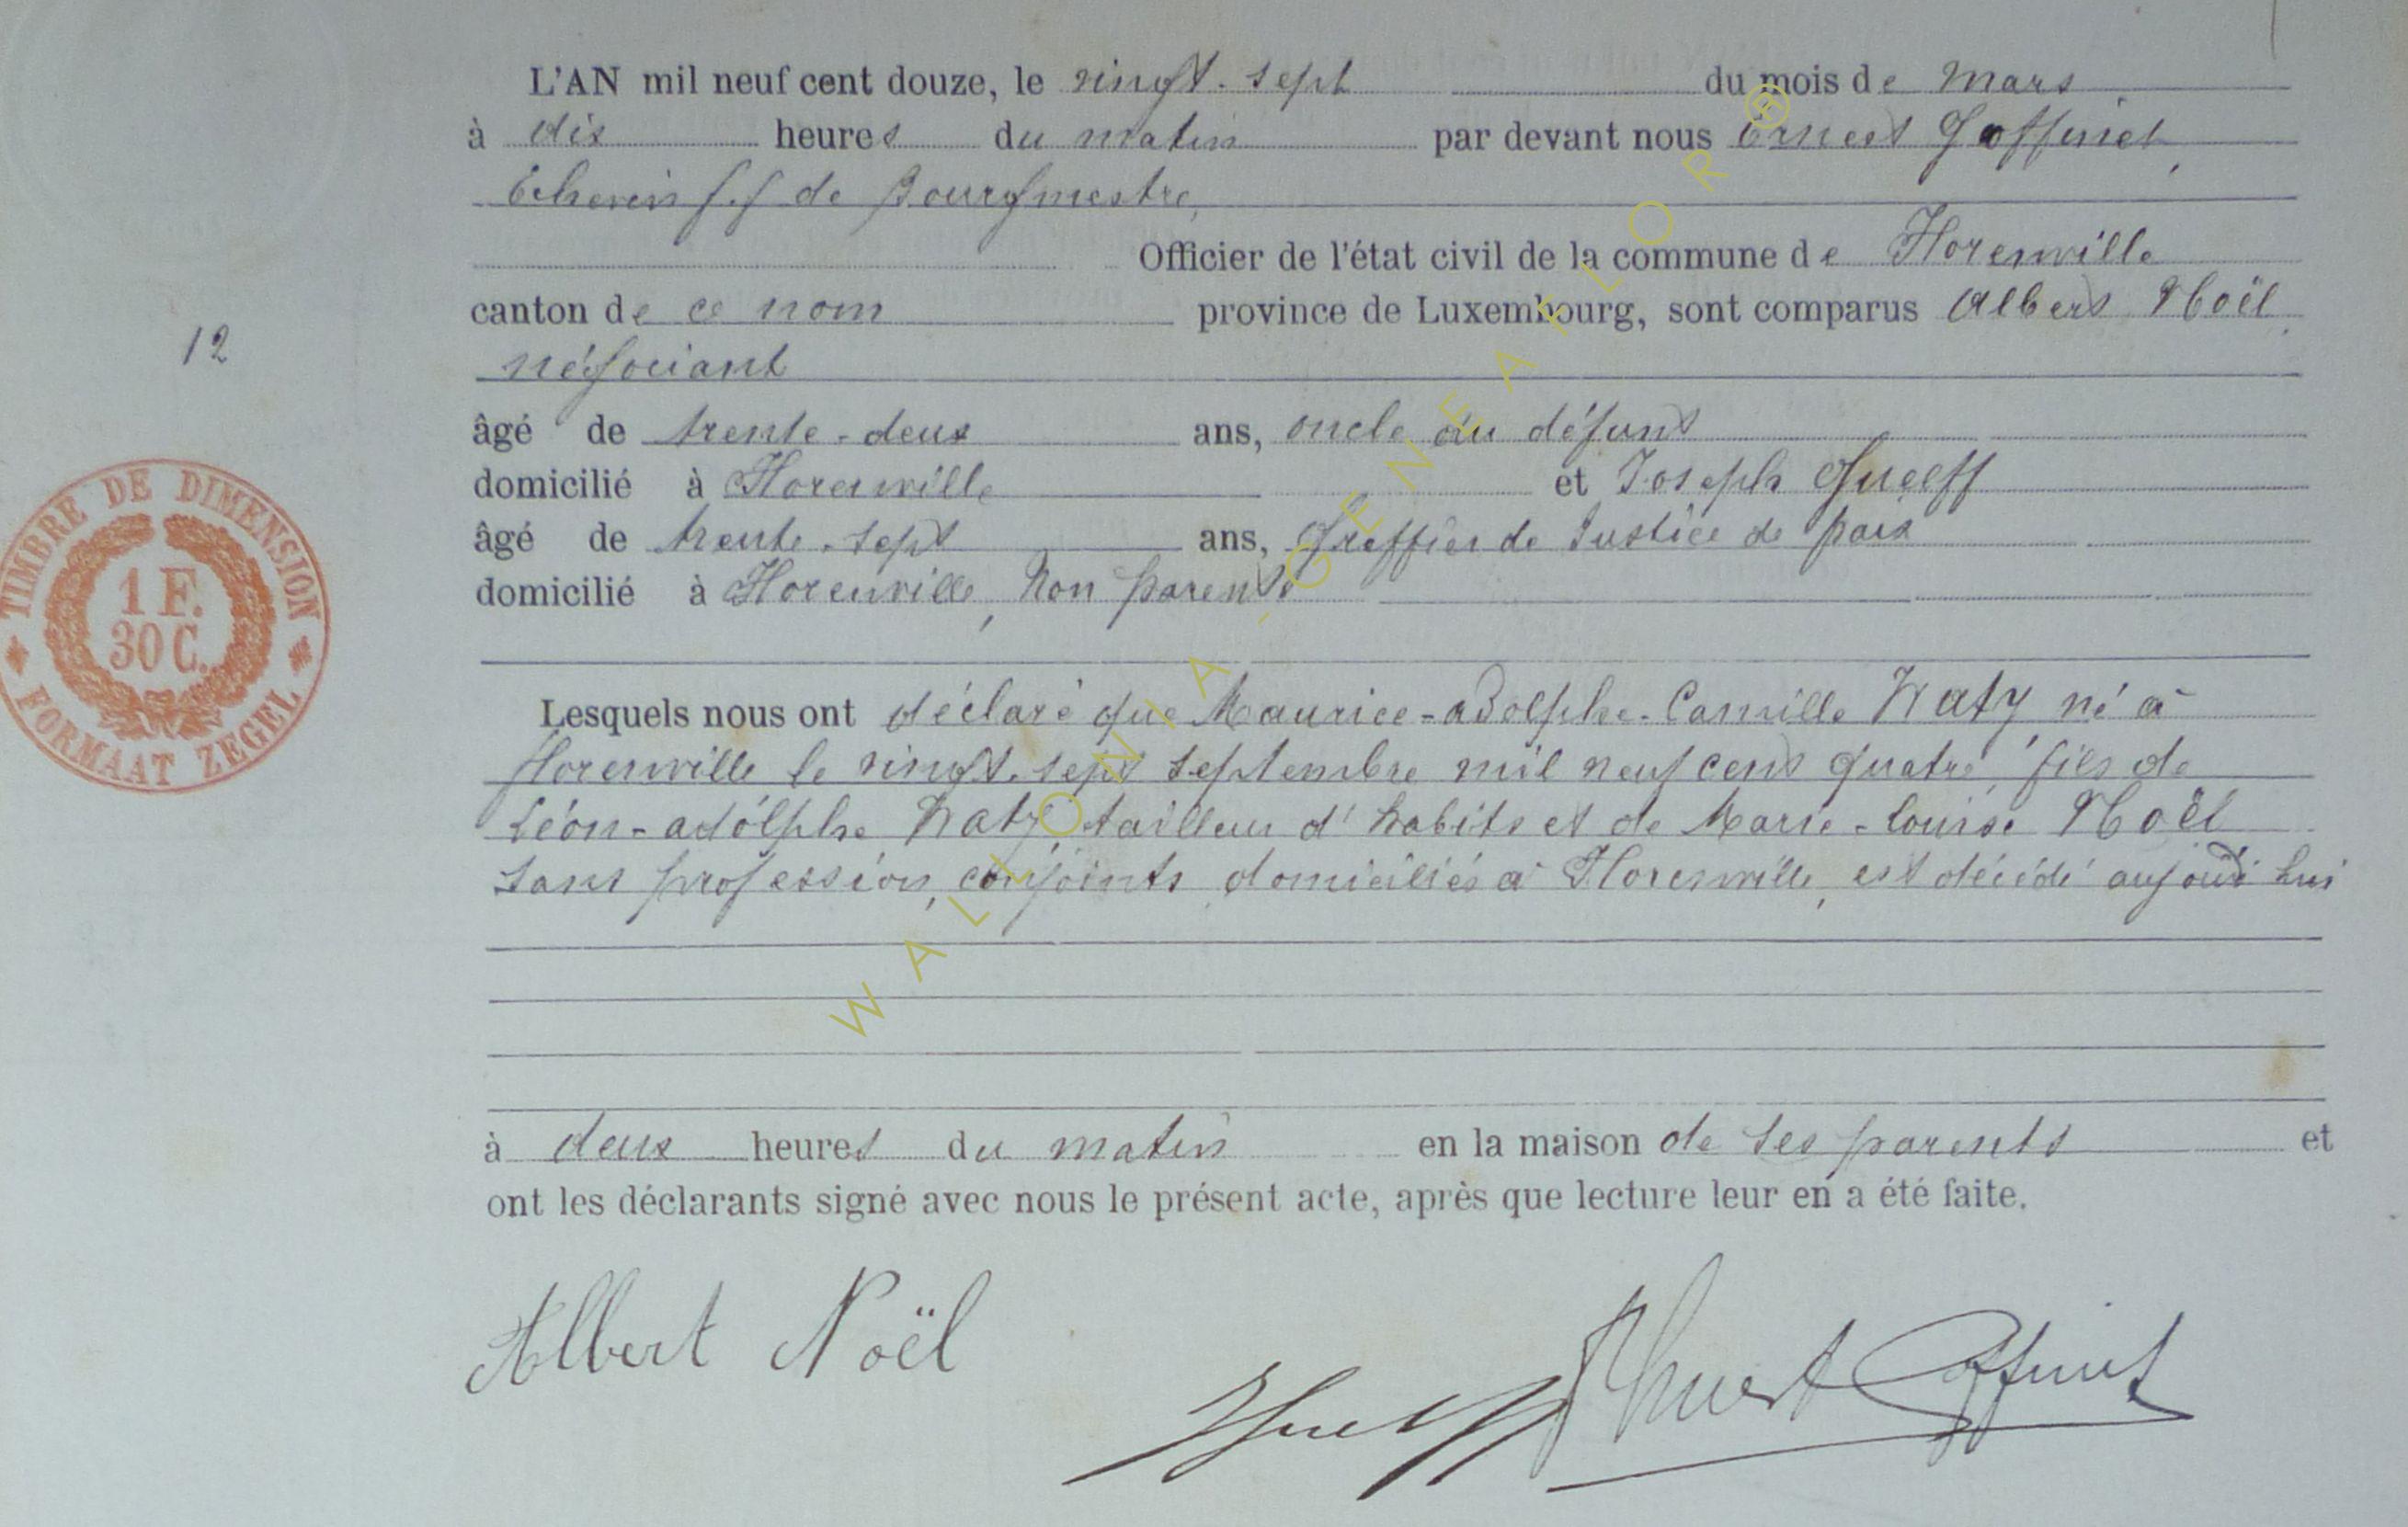 L'AN mil neuf cent douze, le vingt-sept du mois de mars
à dix heures du matin par devant nous Ernest Goffinet,
Echevin f.f de Bourgmestre,
Officier de l'état civil de la commune de Florenville
canton de ce nom province de Luxembourg, sont comparus Albert Noël,
12
négociant
âgé de trente-deux ans, oncle du défunt
domicilié à Florenville et Joseph Guelff
âgé de trente-sept ans, Greffier de Justice de paix
domicilié à Florenville, Non parent
TIMBRE DE DIMENSION
1 F.
30 C.
FORMAAT ZEGEL
Lesquels nous ont déclaré que Maurice-Adolphe-Camille Waty, né à
Florenville le vingt-sept septembre mil neuf cent quatre, fils de
Léon-Adolphe Waty, tailleur d'habits et de Marie-Louise Noël
sans profession, conjoints, domiciliés à Florenville, est décédé aujourd'hui
à deux heures du matin en la maison de ses parents et
ont les déclarants signé avec nous le présent acte, après que lecture leur en a été faite.
Albert Noël
Guelff Ernest Goffinet
WALLONIA-GENEAFLOR®